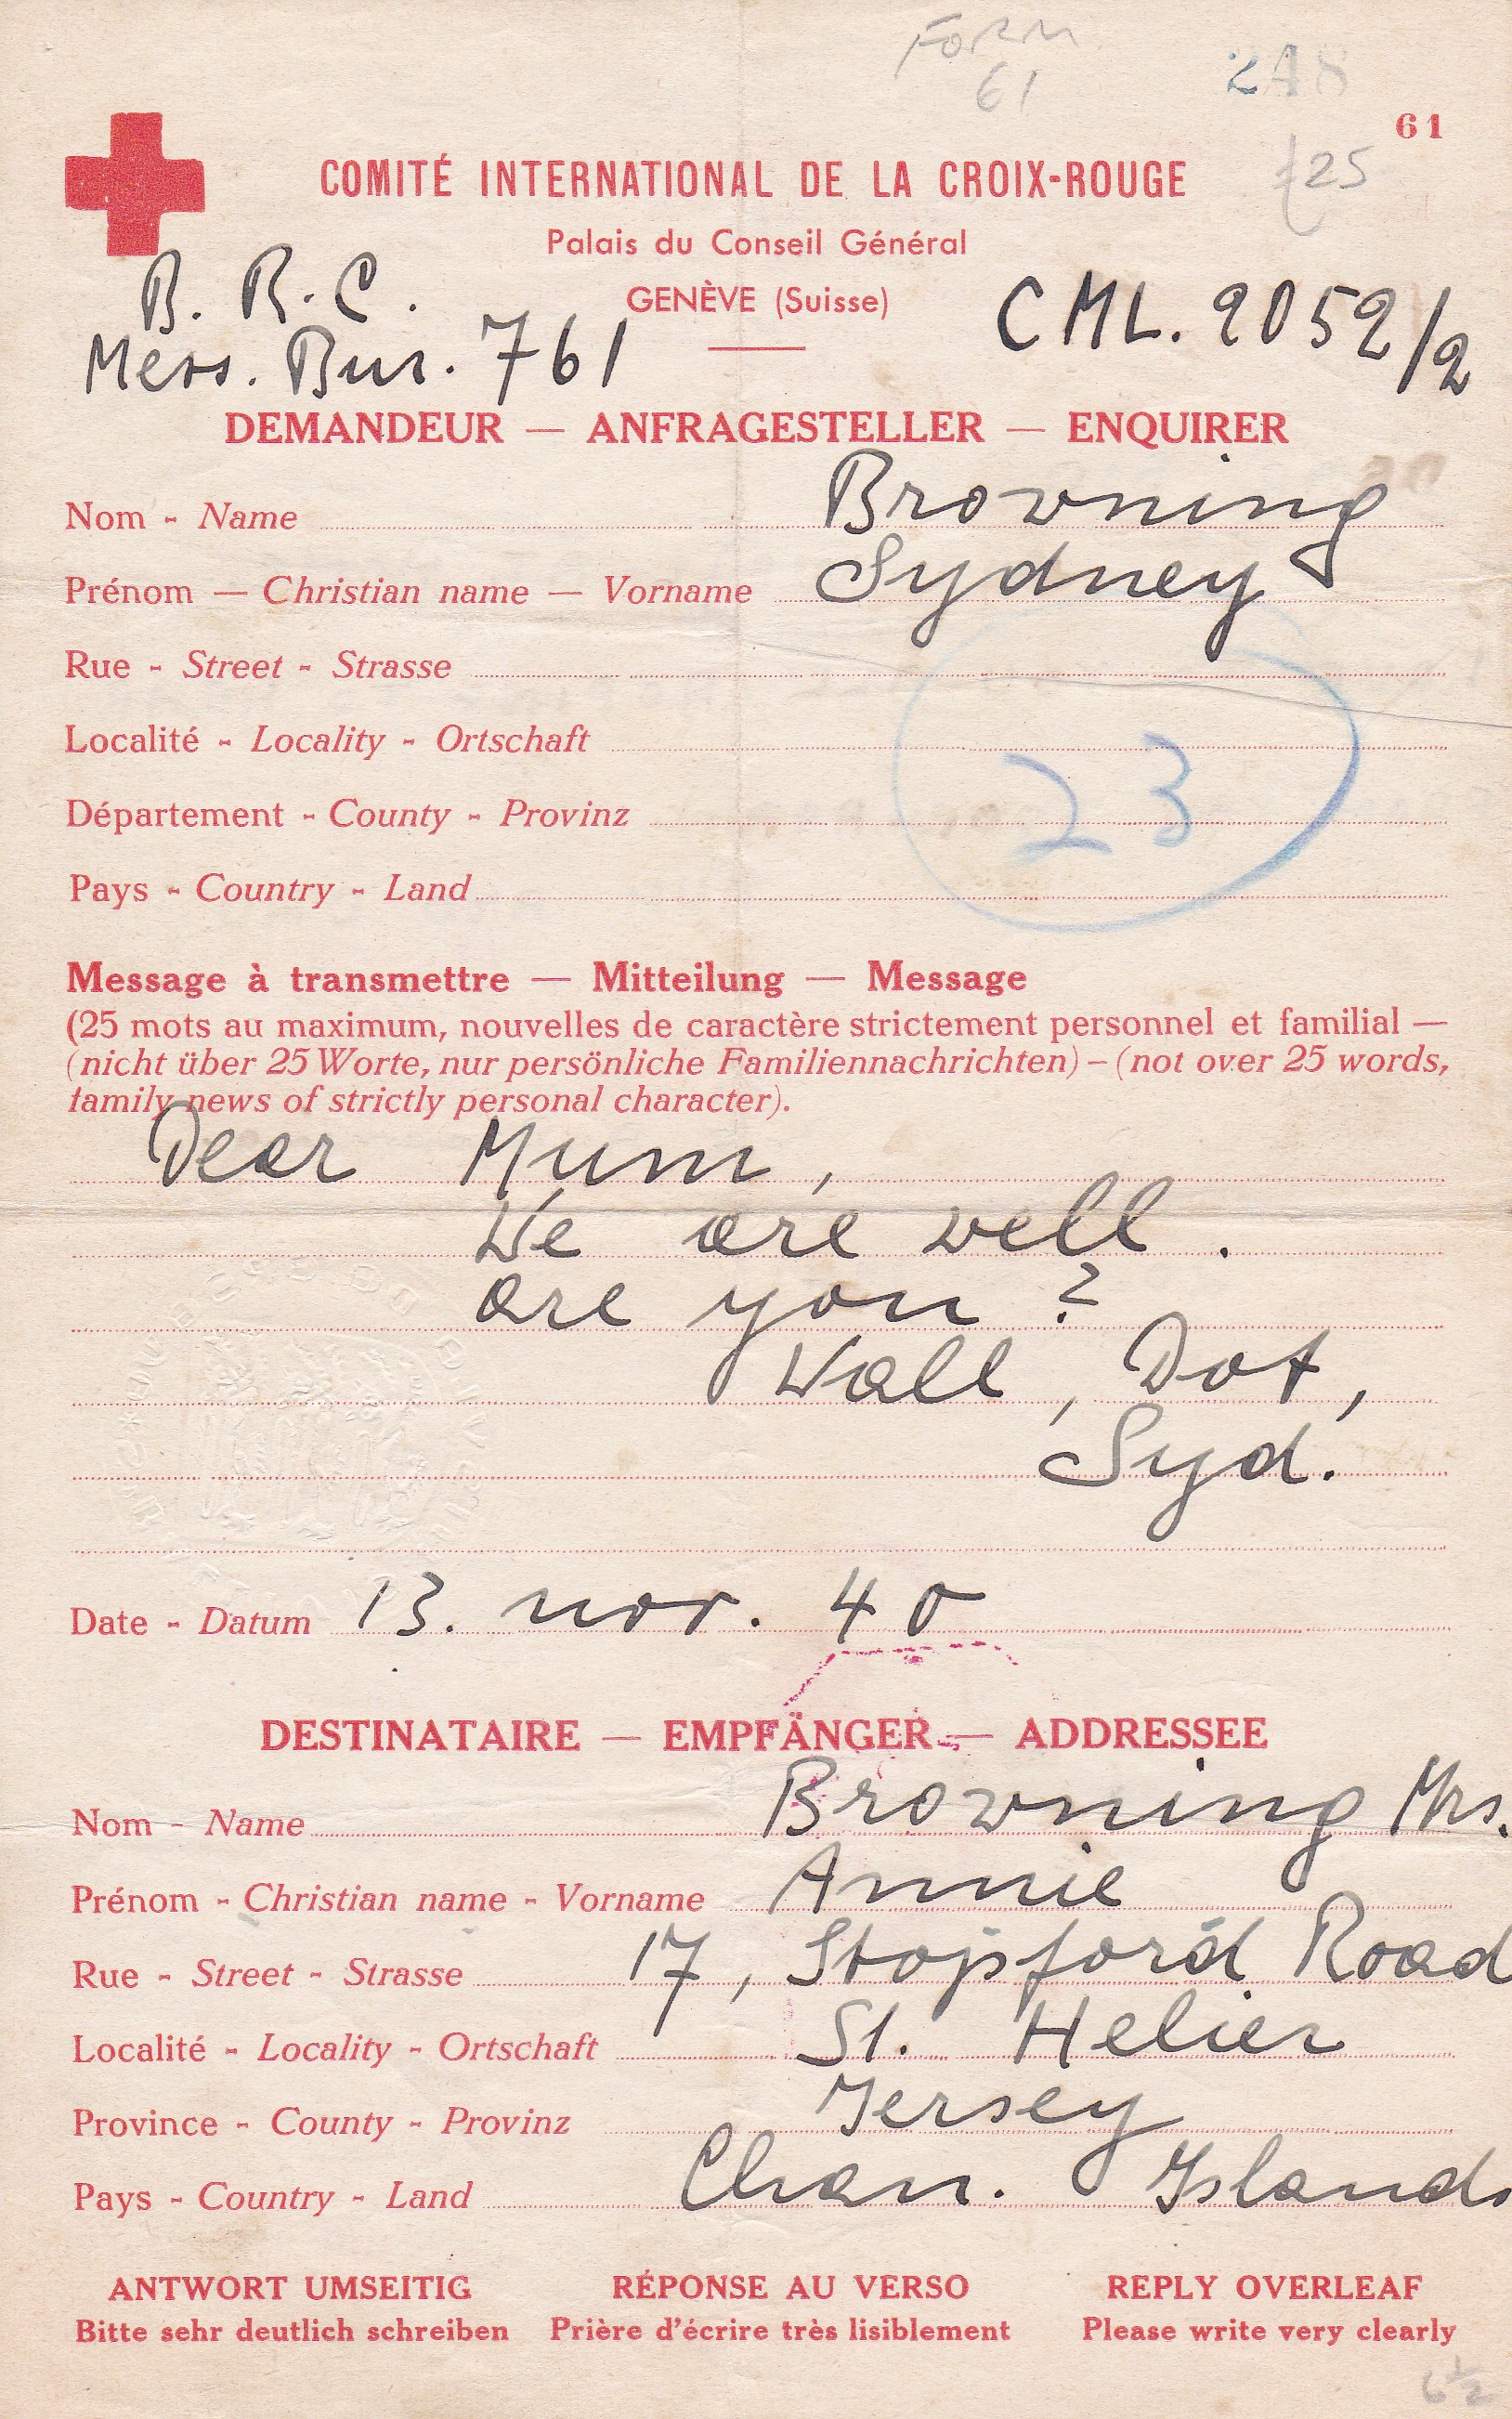 FORM
61
248
61
£25
COMITÉ INTERNATIONAL DE LA CROIX-ROUGE
Palais du Conseil Général
GENÈVE (Suisse)
B. R. C.
Mess. Bur. 761
CML. 2052/2
DEMANDEUR — ANFRAGESTELLER — ENQUIRER
Nom - Name Browning
Prénom — Christian name — Vorname Sydney
Rue - Street - Strasse
Localité - Locality - Ortschaft
Département - County - Provinz
23
Pays - Country - Land
Message à transmettre — Mitteilung — Message
(25 mots au maximum, nouvelles de caractère strictement personnel et familial —
(nicht über 25 Worte, nur persönliche Familiennachrichten) – (not over 25 words,
family news of strictly personal character).
Dear Mum,
We are well.
are you?
Wall, Dot,
Syd.
Date - Datum 13. nov. 40
DESTINATAIRE — EMPFÄNGER — ADDRESSEE
Nom - Name Browning Mrs.
Prénom - Christian name - Vorname Annie
Rue - Street - Strasse 17, Stopford Road
Localité - Locality - Ortschaft St. Helier
Province - County - Provinz Jersey
Pays - Country - Land Chan. Islands
ANTWORT UMSEITIG RÉPONSE AU VERSO REPLY OVERLEAF
Bitte sehr deutlich schreiben Prière d'écrire très lisiblement Please write very clearly
6 1/2